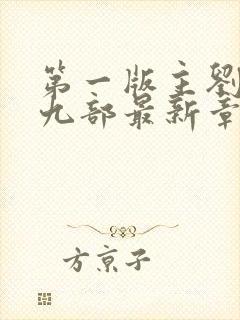 第一版主劉
九部最新章
方京子